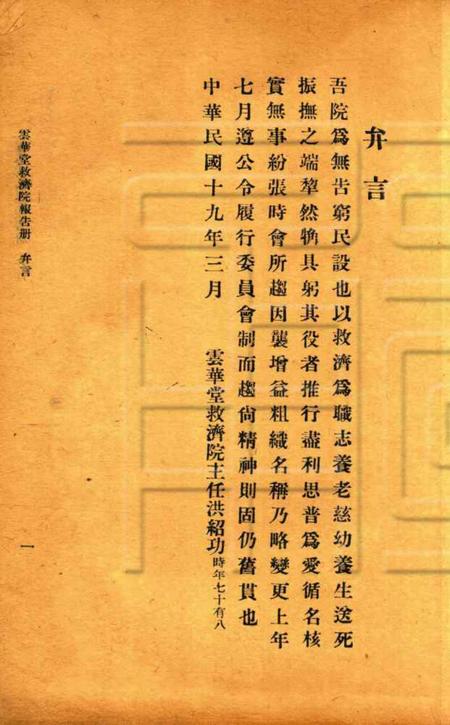 弁言
吾院爲無告窮民設也以救濟爲職志養老慈幼養生送死
振撫之端犖然犓具躬其役者推行盡利思普爲愛循名核
實無事紛張時會所趨因襲增益粗織名稱乃略變更上年
七月遵公令履行委員會制而趨尙精神則固仍舊貫也
中華民國十九年三月 雲華堂救濟院主任洪紹功時年七十有八
雲華堂救濟院報告册 弁言
一